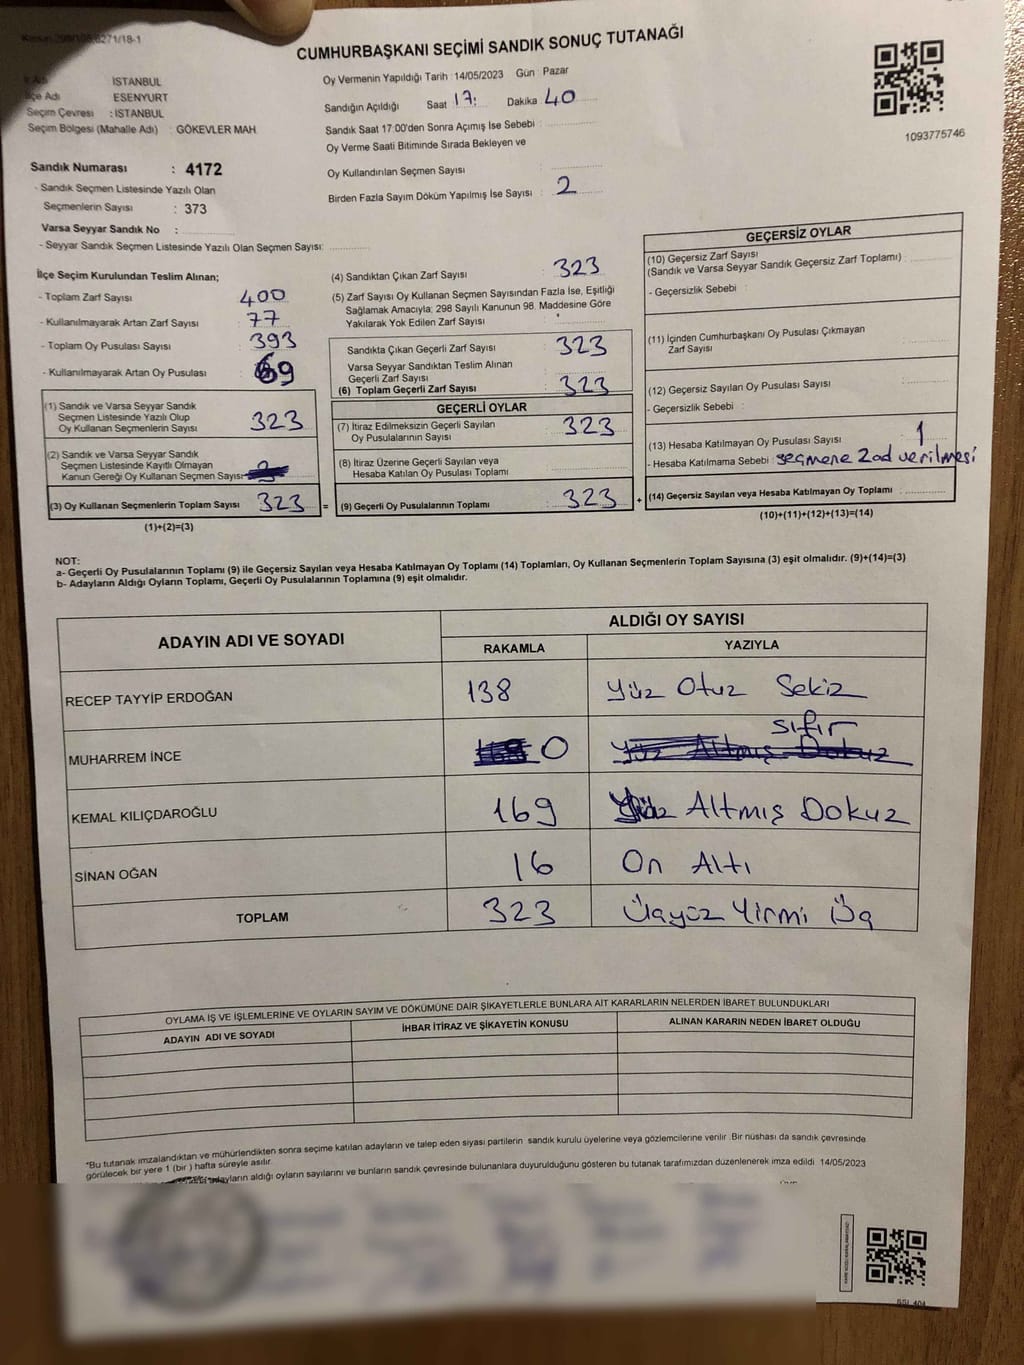 Kanun:298/105,6271/18-1
CUMHURBAŞKANI SEÇİMİ SANDIK SONUÇ TUTANAĞI
İl Adı : İSTANBUL
İlçe Adı : ESENYURT
Seçim Çevresi : İSTANBUL
Seçim Bölgesi (Mahalle Adı) : GÖKEVLER MAH
Sandık Numarası : 4172
- Sandık Seçmen Listesinde Yazılı Olan
Seçmenlerin Sayısı : 373
Varsa Seyyar Sandık No :
- Seyyar Sandık Seçmen Listesinde Yazılı Olan Seçmen Sayısı:
Oy Vermenin Yapıldığı Tarih : 14/05/2023 Gün Pazar
Sandığın Açıldığı Saat 17: Dakika 40
Sandık Saat 17:00'den Sonra Açımış İse Sebebi :
Oy Verme Saati Bitiminde Sırada Bekleyen ve
Oy Kullandırılan Seçmen Sayısı :
Birden Fazla Sayım Döküm Yapılmış İse Sayısı : 2
1093775746
İlçe Seçim Kurulundan Teslim Alınan;
- Toplam Zarf Sayısı : 400
- Kullanılmayarak Artan Zarf Sayısı : 77
- Toplam Oy Pusulası Sayısı : 393
- Kullanılmayarak Artan Oy Pusulası : 69
(1) Sandık ve Varsa Seyyar Sandık
Seçmen Listesinde Yazılı Olup
Oy Kullanan Seçmenlerin Sayısı : 323
(2) Sandık ve Varsa Seyyar Sandık
Seçmen Listesinde Kayıtlı Olmayan
Kanun Gereği Oy Kullanan Seçmen Sayısı
(3) Oy Kullanan Seçmenlerin Toplam Sayısı : 323 =
(1)+(2)=(3)
(4) Sandıktan Çıkan Zarf Sayısı : 323
(5) Zarf Sayısı Oy Kullanan Seçmen Sayısından Fazla İse, Eşitliği
Sağlamak Amacıyla; 298 Sayılı Kanunun 98. Maddesine Göre
Yakılarak Yok Edilen Zarf Sayısı :
Sandıkta Çıkan Geçerli Zarf Sayısı : 323
Varsa Seyyar Sandıktan Teslim Alınan
Geçerli Zarf Sayısı :
(6) Toplam Geçerli Zarf Sayısı : 323
GEÇERLİ OYLAR
(7) İtiraz Edilmeksizin Geçerli Sayılan
Oy Pusulalarının Sayısı : 323
(8) İtiraz Üzerine Geçerli Sayılan veya
Hesaba Katılan Oy Pusulası Toplamı :
(9) Geçerli Oy Pusulalarının Toplamı : 323 +
GEÇERSİZ OYLAR
(10) Geçersiz Zarf Sayısı
(Sandık ve Varsa Seyyar Sandık Geçersiz Zarf Toplamı) :
- Geçersizlik Sebebi :
(11) İçinden Cumhurbaşkanı Oy Pusulası Çıkmayan
Zarf Sayısı :
(12) Geçersiz Sayılan Oy Pusulası Sayısı :
- Geçersizlik Sebebi :
(13) Hesaba Katılmayan Oy Pusulası Sayısı : 1
- Hesaba Katılmama Sebebi : seçmene 2 ad verilmesi
(14) Geçersiz Sayılan veya Hesaba Katılmayan Oy Toplamı :
(10)+(11)+(12)+(13)=(14)
NOT:
a- Geçerli Oy Pusulalarının Toplamı (9) ile Geçersiz Sayılan veya Hesaba Katılmayan Oy Toplamı (14) Toplamları, Oy Kullanan Seçmenlerin Toplam Sayısına (3) eşit olmalıdır. (9)+(14)=(3)
b- Adayların Aldığı Oyların Toplamı, Geçerli Oy Pusulalarının Toplamına (9) eşit olmalıdır.
ADAYIN ADI VE SOYADI
ALDIĞI OY SAYISI
RAKAMLA YAZIYLA
RECEP TAYYİP ERDOĞAN 138 Yüz Otuz Sekiz
MUHARREM İNCE 169 0 Yüz Altmış Dokuz sıfır
KEMAL KILIÇDAROĞLU 169 Yüz Altmış Dokuz
SİNAN OĞAN 16 On Altı
TOPLAM 323 Üçyüz Yirmi Üç
OYLAMA İŞ VE İŞLEMLERİNE VE OYLARIN SAYIM VE DÖKÜMÜNE DAİR ŞİKAYETLERLE BUNLARA AİT KARARLARIN NELERDEN İBARET BULUNDUKLARI
ADAYIN ADI VE SOYADI İHBAR İTİRAZ VE ŞİKAYETİN KONUSU ALINAN KARARIN NEDEN İBARET OLDUĞU
*Bu tutanak imzalandıktan ve mühürlendikten sonra seçime katılan adayların ve talep eden siyasi partilerin sandık kurulu üyelerine veya gözlemcilerine verilir. Bir nüshası da sandık çevresinde
görülecek bir yere 1 (bir ) hafta süreyle asılır.
adayların aldığı oyların sayılarını ve bunların sandık çevresinde bulunanlara duyurulduğunu gösteren bu tutanak tarafımızdan düzenlenerek imza edildi 14/05/2023